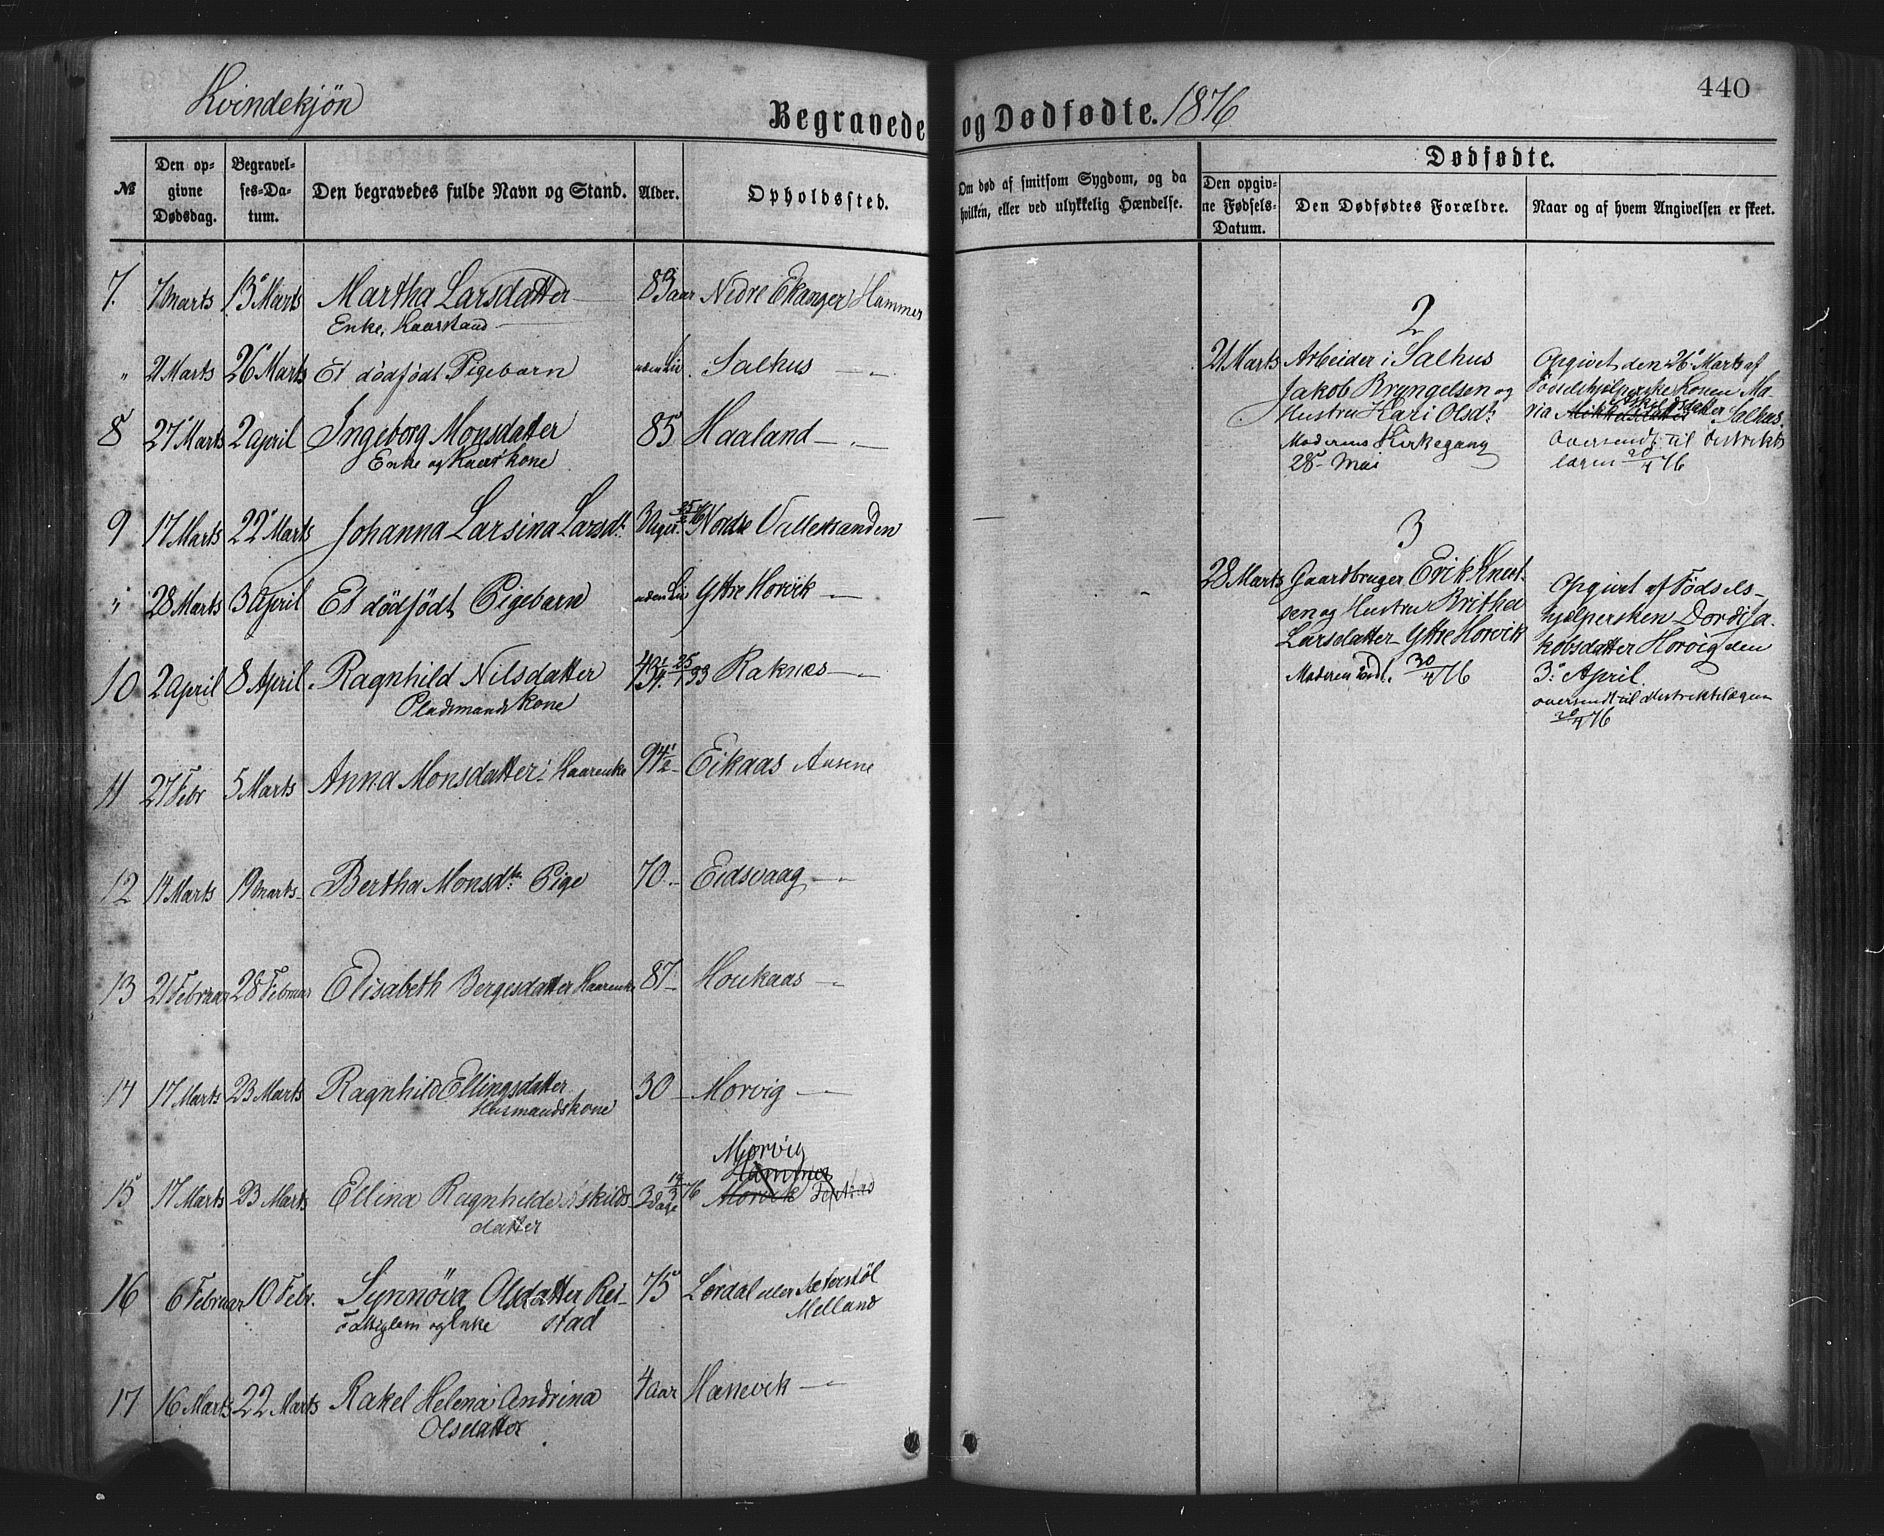 Kvindekjön
Begravede og Dødfødte. 1876
440
№
Den opgivne Dødsdag.
Begravelses-Datum.
Den begravedes fulde Navn og Stand.
Alder.
Opholdssted.
Om død af smitsom Sygdom, og da hvilken, eller ved ulykkelig Hændelse.
Dødfødte.
Den opgivne Fødsels-Datum.
Den Dødfødtes Forældre.
Naar og af hvem Angivelsen er skeet.
7. 7 Marts 13 Marts Martha Larsdatter 83 aar Nedre Ekanger Hammer
Enke, Kaarstand
" 21 Marts 26 Marts Et dödfödt Pigebarn uden Liv Salhus
8 27 Marts 2 April Ingeborg Monsdatter 85 Haaland
Enke og Kaarkone
9 17 Marts 22 Marts Johanna Larsina Larsdt. 3 Uger Nordre
" 28 Marts 3 April Et dödfödt Pigebarn uden Liv Yttre Horvik
10 2 April 8 April Ragnhild Nilsdatter Raknæs
Pladsmands Kone
11 27 Febr 5 Marts Anna Monsdatter Kaarenke 94½ Eikaas Aasene
12 14 Marts 19 Marts Bertha Monsdt. Pige 70 Eidsvaag
13 21 Februar 28 Februar Elisabeth Bergesdatter Kaarenke 87 Houkaas
14 17 Marts 23 Marts Ragnhild Ellingsdatter 30 Morvig
Husmandskone
Morvig
Hammer
15 17 Marts 23 Marts Ellina Ragnhilde skilds 3 Dage 14/3 76 Morvik
datter
16 6 Februar 10 Febr. Synnöva Olsdatter Rei- 75 Lördal eller
og Enke stad Melland
17 16 Marts 22 Marts Rakel Helena Andrina 4 aar
Olsdatter
2
21 Marts Arbeider i Salhus
Jakob Bryngelsen og
Hustru Kari Olsdt.
Moderens Kirkegang
28 Mai
Opgivet den 26 Marts af
Födselshjelperske Konen Ma-
ria datter Salhus.
Oversendt til Distrikts
lægen 20/4 76
3
28 Marts Gaardbruger Erik Knut-
sen og Hustru Brithe
Larsdatter Yttre Horvik
Moderen indl. 30/4 76
Opgivet af Födsels-
hjelpersken Dordi Ja-
kobsdatter Horvig den
3 April.
oversendt til distriktslægen
20/4 76